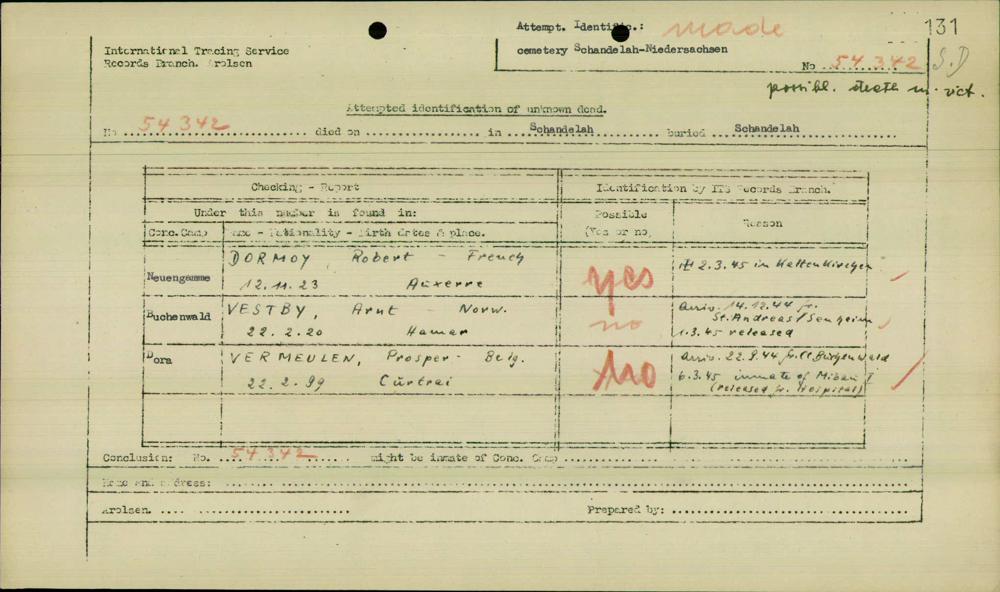 Attempt. Identific.: made 131
International Tracing Service
Records Branch. Arolsen
cemetery Schandelah-Niedersachsen
No ..54 342.. S.D
possibl. death in vict.
Attempted identification of unknown dead.
No ..54 342.. died on .......... in ..Schandelah.. buried ..Schandelah..
Checking - Report
Identification by ITS Records Branch.
Under this number is found in:
Possible
(Yes or no)
Reason
Conc.Camp
Name - Nationality - Birth dates & place.
Neuengamme
DORMOY, Robert - French
12.11.23 Auxerre
yes
2.3.45 in
Buchenwald
VESTBY, Arnt - Norw.
22.2.20 Hamar
no
arriv. 14.12.44 fr.
St. Andreas/Sennheim
1.3.45 released
Dora
VERMEULEN, Prosper - Belg.
22.2.99 Cürtrai
No
arriv. 22.9.44 fr.
6.3.45 inmate of I
(released fr. Hospital)
Conclusion: No. ..54 342.. might be inmate of Conc. Camp ..........
Name and address: ..........
Arolsen. .......... Prepared by: ..........